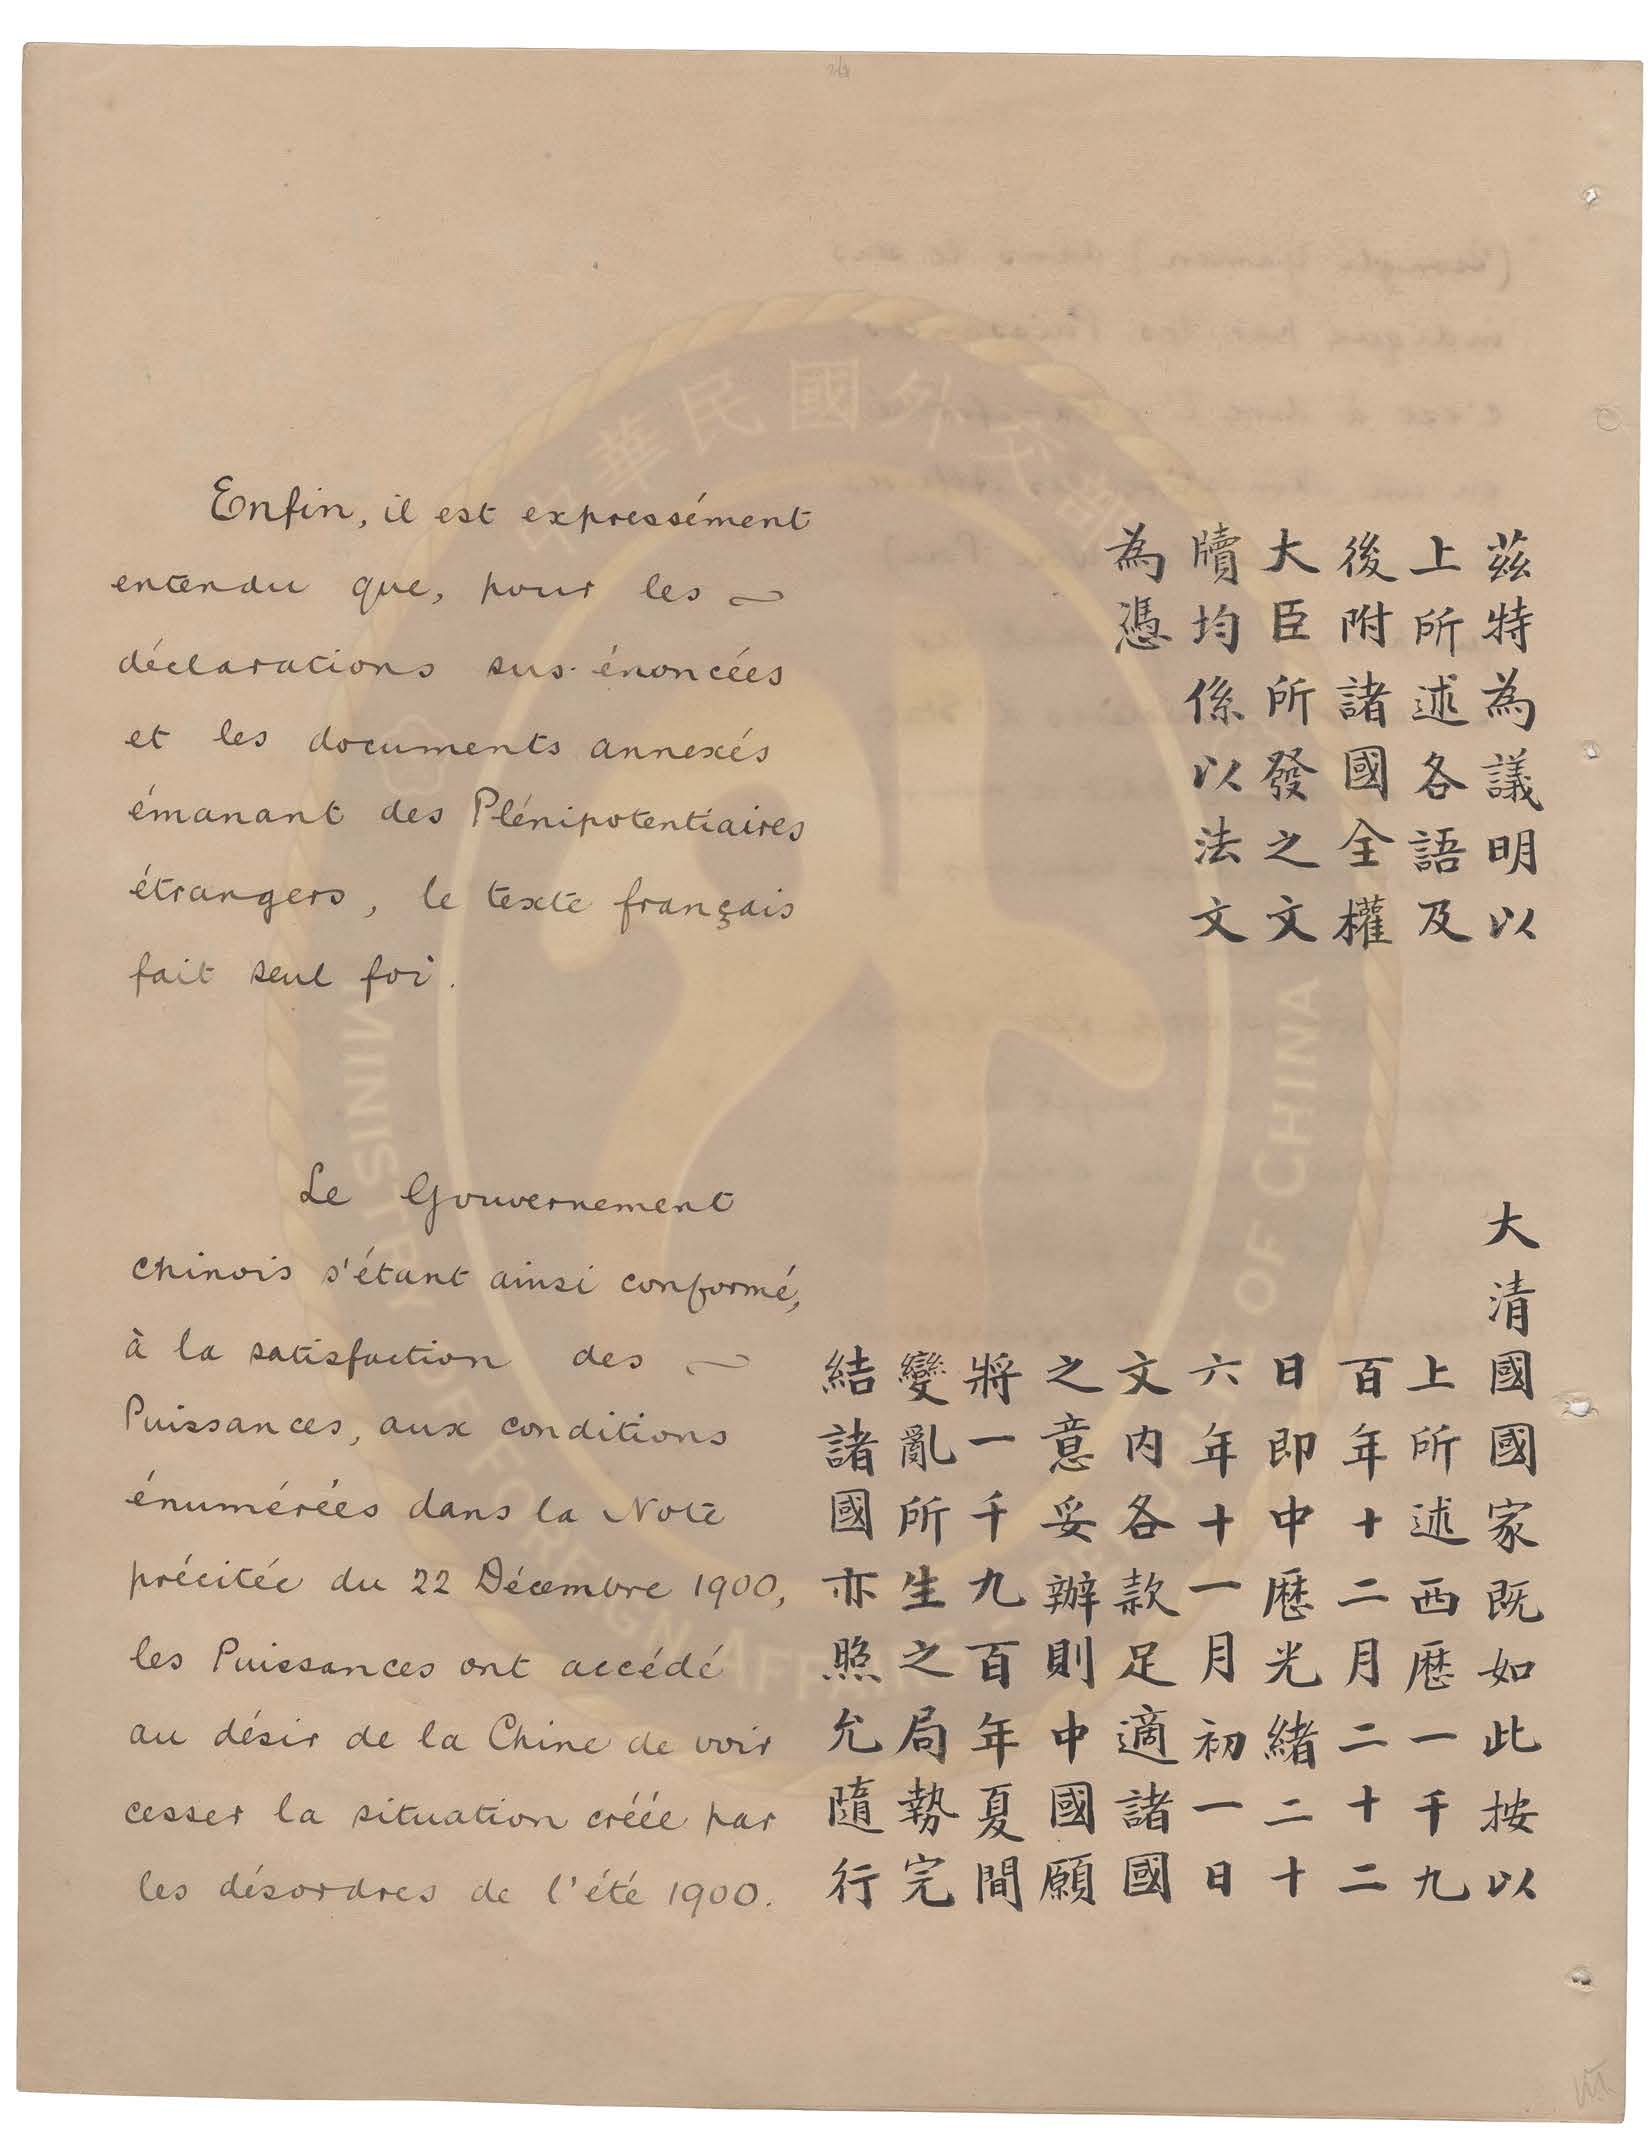 Enfin, il est expressément
entendu que, pour les
déclarations sus-énoncées
et les documents annexés
émanant des Plénipotentiaires
étrangers, le texte français
fait seul foi.
茲特為議明以
上所述各語及
後附諸國全權
大臣所發之文
牘均係以法文
為憑
Le Gouvernement
chinois s'étant ainsi conformé,
à la satisfaction des
Puissances, aux conditions
énumérées dans la Note
précitée du 22 Décembre 1900,
les Puissances ont accédé
au désir de la Chine de voir
cesser la situation créée par
les désordres de l'été 1900.
大清國國家既如此按以
上所述西厯一千九
百年十二月二十二
日即中厯光緒二十
六年十一月初一日
文内各款足適諸國
之意妥辦則中國願
將一千九百年夏間
變亂所生之局勢完
結諸國亦照允隨行
中華民國外交部
MINISTRY OF FOREIGN AFFAIRS REPUBLIC OF CHINA